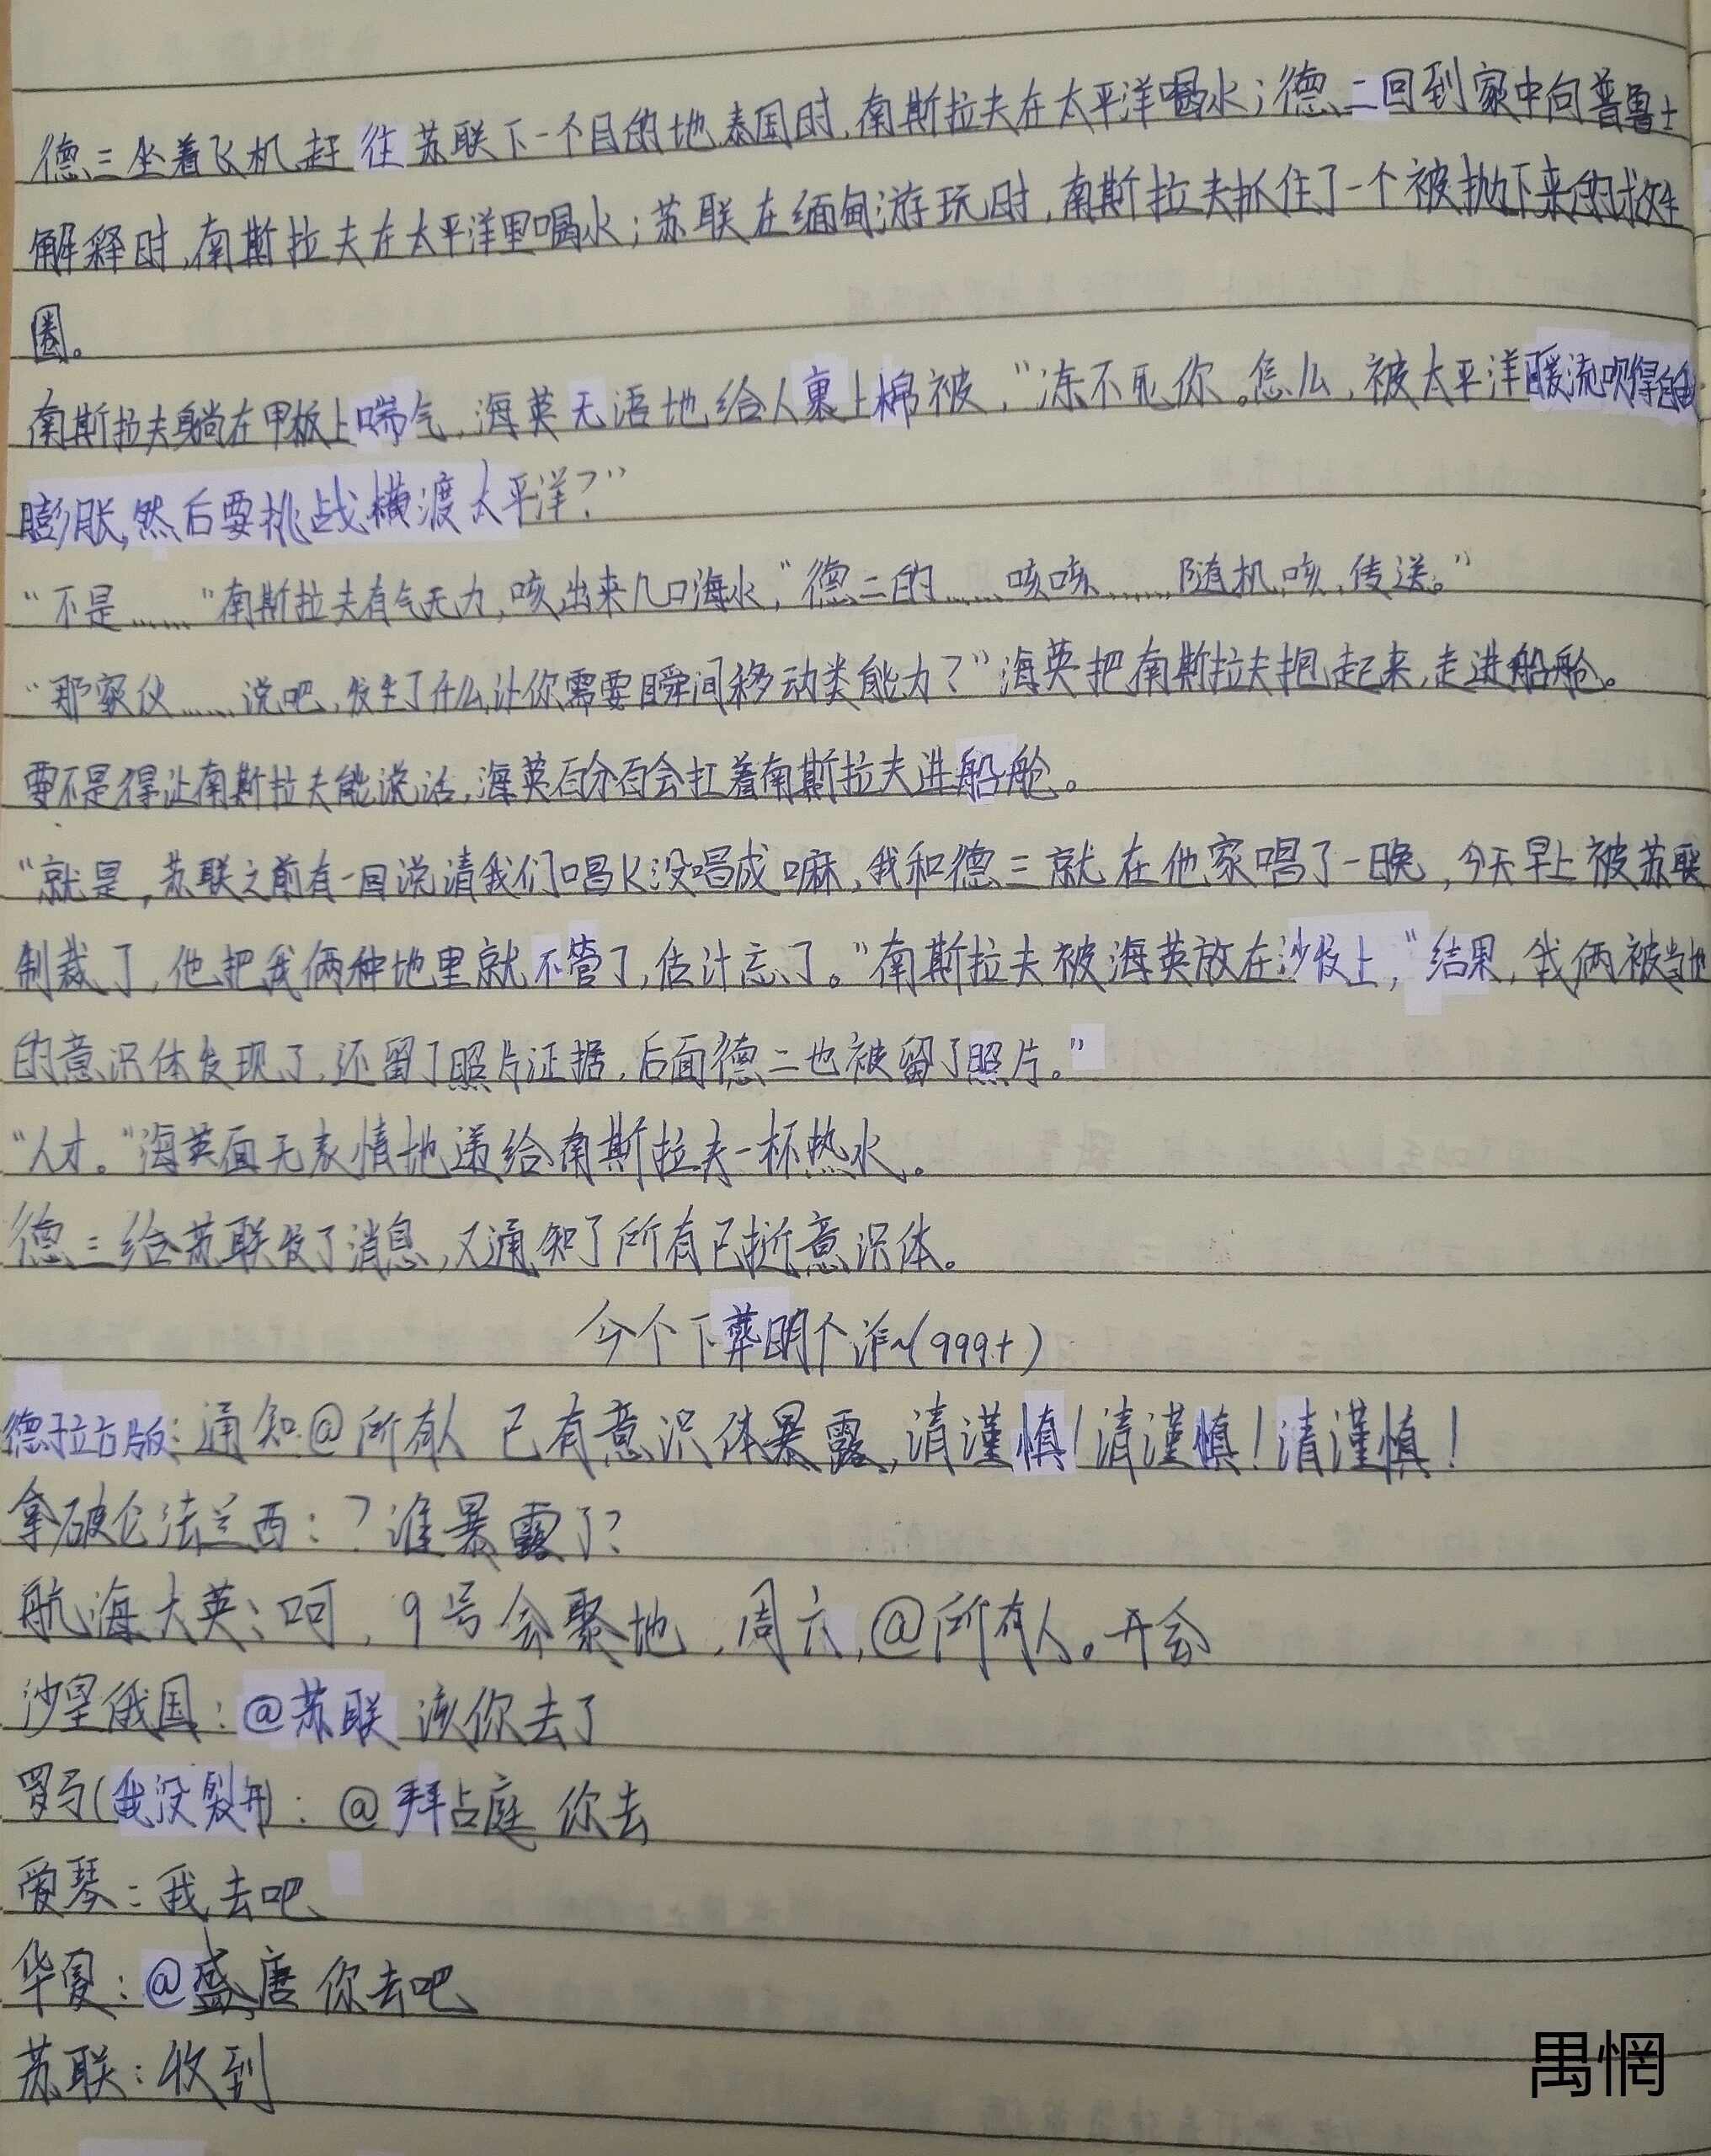 德三坐着飞机赶往苏联下一个目的地泰国时,南斯拉夫在太平洋喝水;德二回到家中向普鲁士
解释时,南斯拉夫在太平洋里喝水;苏联在缅甸游玩时,南斯拉夫抓住了一个被抛下来的救生
圈。
南斯拉夫躺在甲板上喘气,海英无语地给人裹上棉被,“冻不死你。怎么,被太平洋暖流吹得自我
膨胀,然后要挑战横渡太平洋?”
“不是……”南斯拉夫有气无力,咳出来几口海水,“德二的……咳咳……随机,咳,传送。”
“那家伙……说吧,发生了什么让你需要瞬间移动类能力?”海英把南斯拉夫抱起来,走进船舱。
要不是得让南斯拉夫能说话,海英百分百会扛着南斯拉夫进船舱。
“就是,苏联之前有一回说请我们唱K没唱成嘛,我和德三就在他家唱了一晚,今天早上被苏联
制裁了,他把我俩种地里就不管了,估计忘了。”南斯拉夫被海英放在沙发上,“结果,我俩被当地
的意识体发现了,还留了照片证据,后面德二也被留了照片。”
“人才。”海英面无表情地递给南斯拉夫一杯热水。
德三给苏联发了消息,又通知了所有已逝意识体。
今个下葬明个诈~(999+)
德拉古版:通知@所有人 已有意识体暴露,请谨慎!请谨慎!请谨慎!
拿破仑法兰西:?谁暴露了?
航海大英:呵,9号会聚地,周六,@所有人。开会
沙皇俄国:@苏联 该你去了
罗马(我没裂开):@拜占庭 你去
爱琴:我去吧
华夏:@盛唐 你去吧
苏联:收到
禺惘